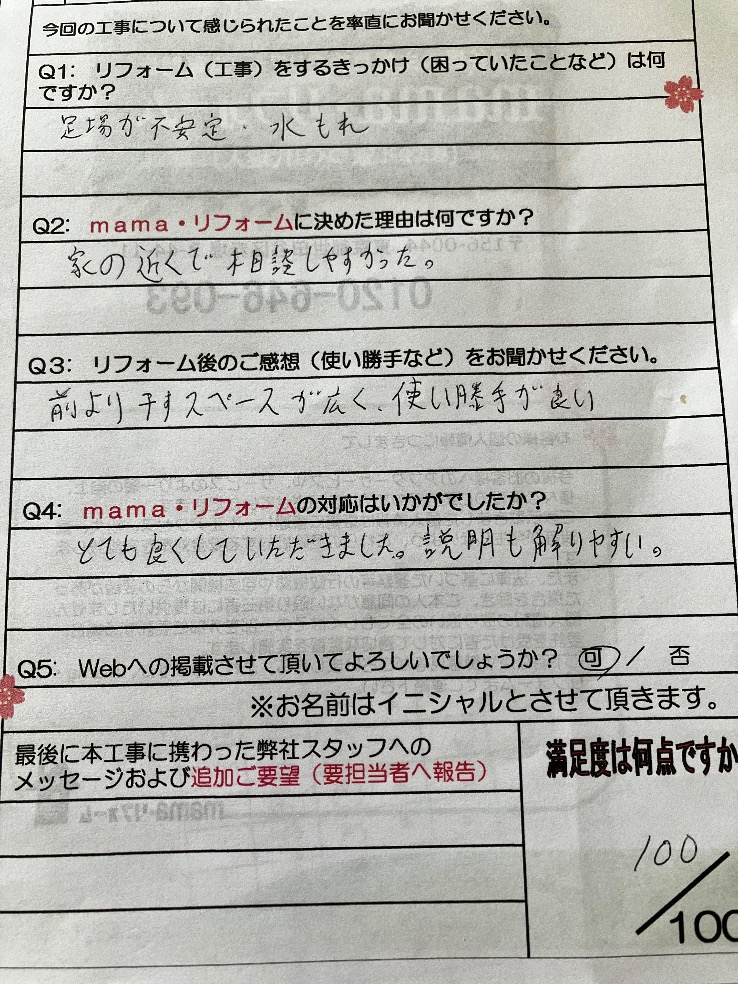 今回の工事について感じられたことを率直にお聞かせください。
Q1: リフォーム（工事）をするきっかけ（困っていたことなど）は何
ですか？
足場が不安定・水もれ
Q2: mama・リフォームに決めた理由は何ですか？
家の近くで相談しやすかった。
Q3: リフォーム後のご感想（使い勝手など）をお聞かせください。
前より干すスペースが広く、使い勝手が良い
Q4: mama・リフォームの対応はいかがでしたか？
とても良くしていただきました。説明も解りやすい。
Q5: Webへの掲載させて頂いてよろしいでしょうか？ 可 / 否
※お名前はイニシャルとさせて頂きます。
最後に本工事に携わった弊社スタッフへの
メッセージおよび追加ご要望（要担当者へ報告）
満足度は何点ですか
100
/100